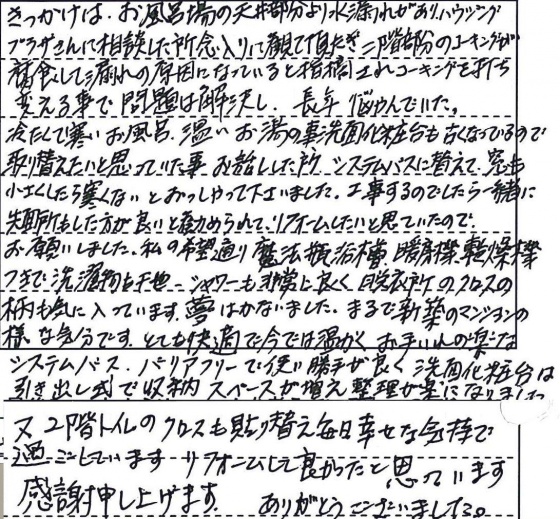 きっかけは、お風呂場の天井部分より水漏れがあり、ハウジング
プラザさんに相談した所念入りに観て頂だき二階部分のコーキングが
腐食して漏れの原因になっていると指摘されコーキングを打ち
変える事で問題は解決し、長年悩やんでいた。
冷たくて寒いお風呂、温いお湯の事洗面化粧台も古くなっているので
取り替えたいと思っていた事お話しした所、システムバスに替えて、窓も
小さくしたら寒くないとおっしゃって下さいました。工事するのでしたら一緒に
洗面所もした方が良いと勧められて、リフォームしたいと思っていたので
お願いしました、私の希望通り魔法瓶浴槽、暖房機、乾燥機
つきで、洗濯物も干せ シャワーも非常に良く、脱衣所のクロスの
柄も気に入っています。夢はかないました。まるで新築のマンションの
様な気分です。とても快適で今では温かくお手いれの楽な
システムバス、バリアフリーで使い勝手が良く洗面化粧台は
引き出し式で収納スペースが増え整理が楽になりました
又2階トイレのクロスも貼り替え毎日幸せな気持で
過ごしています リフォームして良かったと思っています
感謝申し上げます。 ありがとうございました。